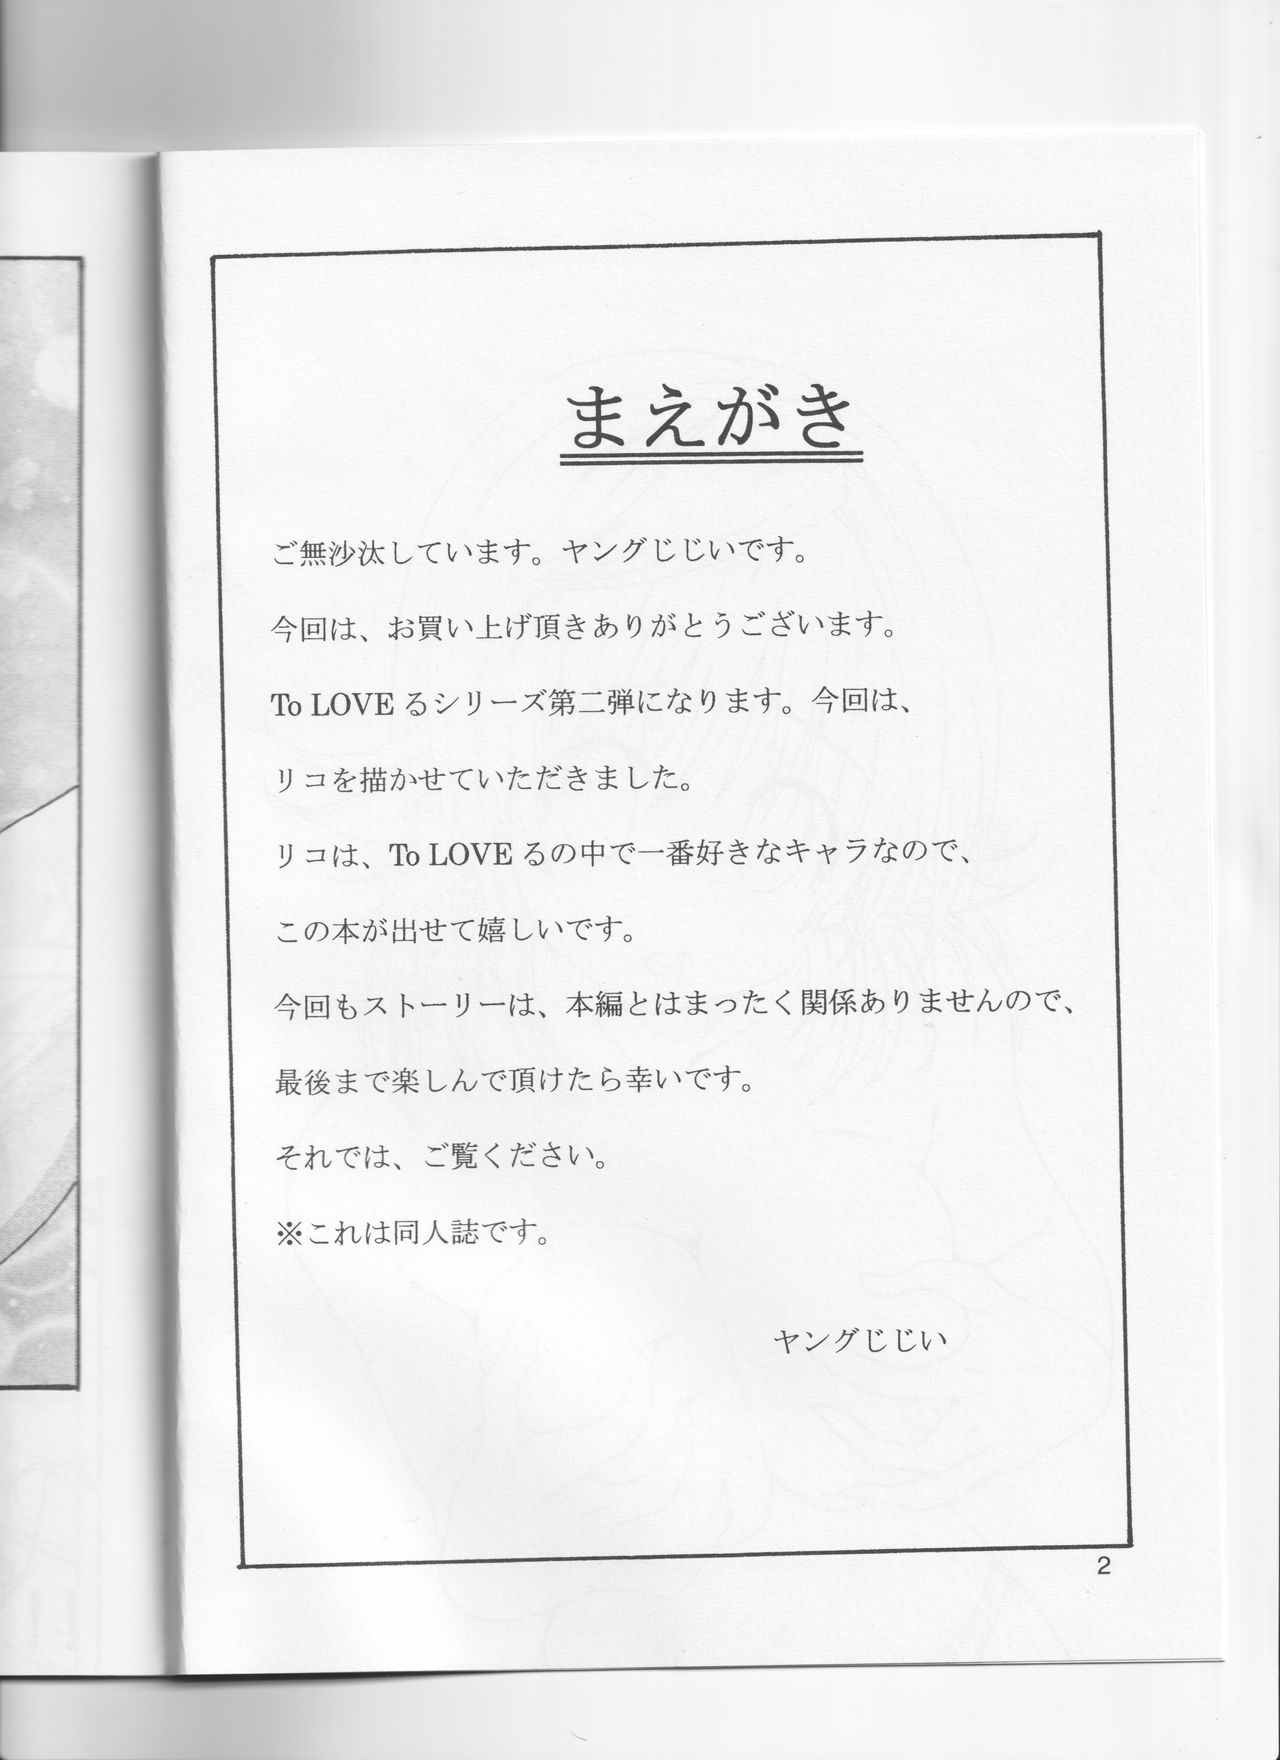 まえがき
ご無沙汰しています。ヤングじじいです。
今回は、お買い上げ頂きありがとうございます。
To LOVEるシリーズ第二弾になります。今回は、
リコを描かせていただきました。
リコは、To LOVEるの中で一番好きなキャラなので、
この本が出せて嬉しいです。
今回もストーリーは、本編とはまったく関係ありませんので、
最後まで楽しんで頂けたら幸いです。
それでは、ご覧ください。
※これは同人誌です。
ヤングじじい
2